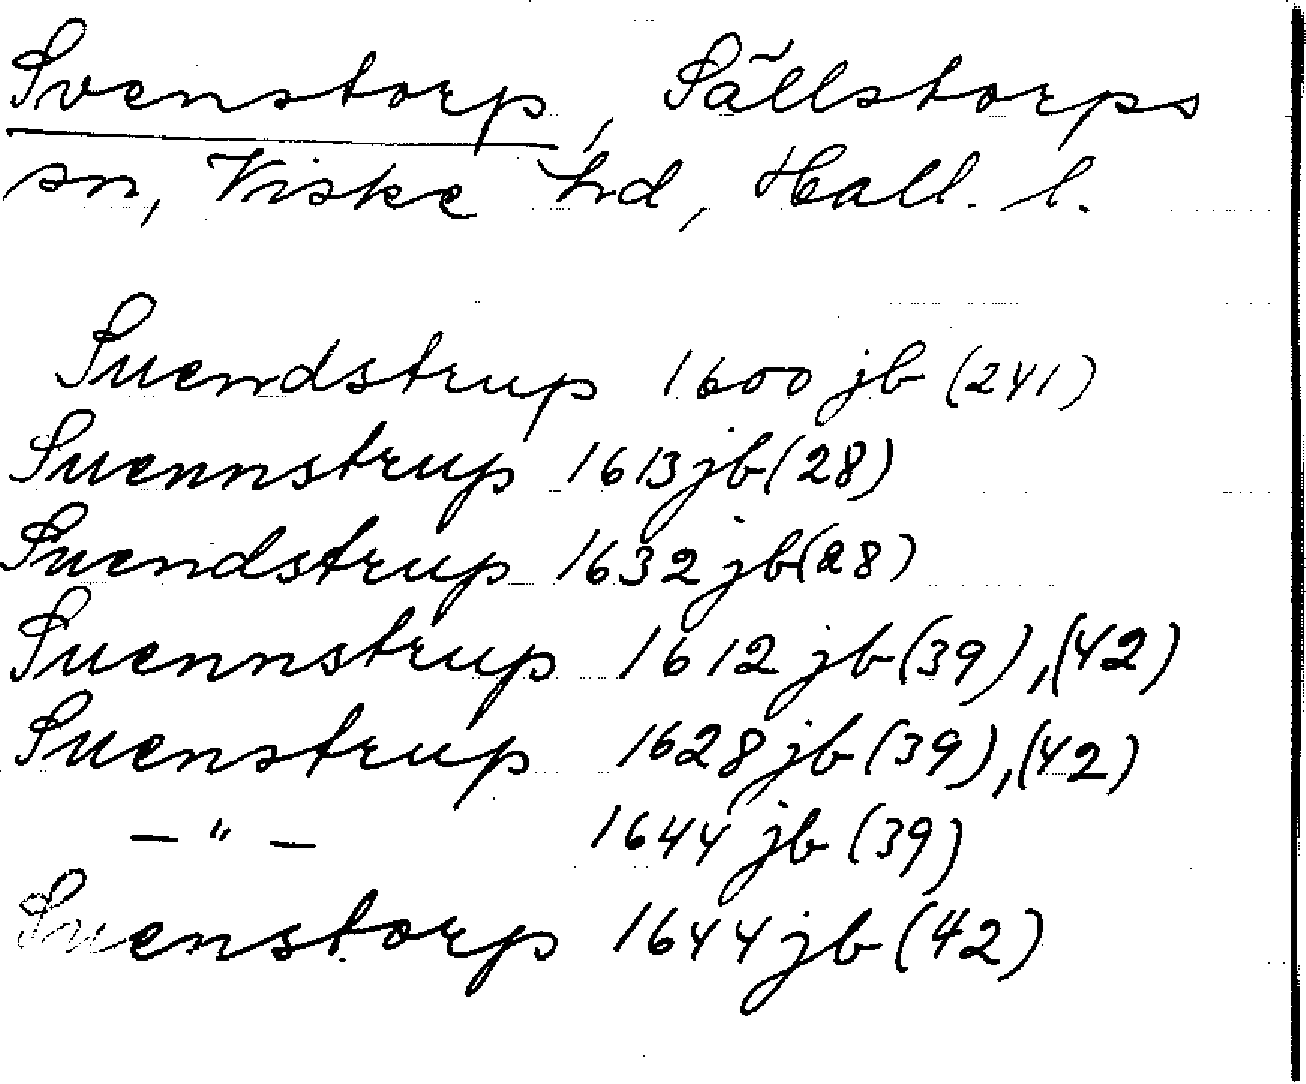 Svenstorp, Sällstorps
sn, Viske hd, Hall. l.
Suendstrup 1600 jb (241)
Suennstrup 1613 jb (28)
Suendstrup 1632 jb (28)
Suennstrup 1612 jb (39), (42)
Suenstrup 1628 jb (39), (42)
— " — 1644 jb (39)
Suenstorp 1644 jb (42)